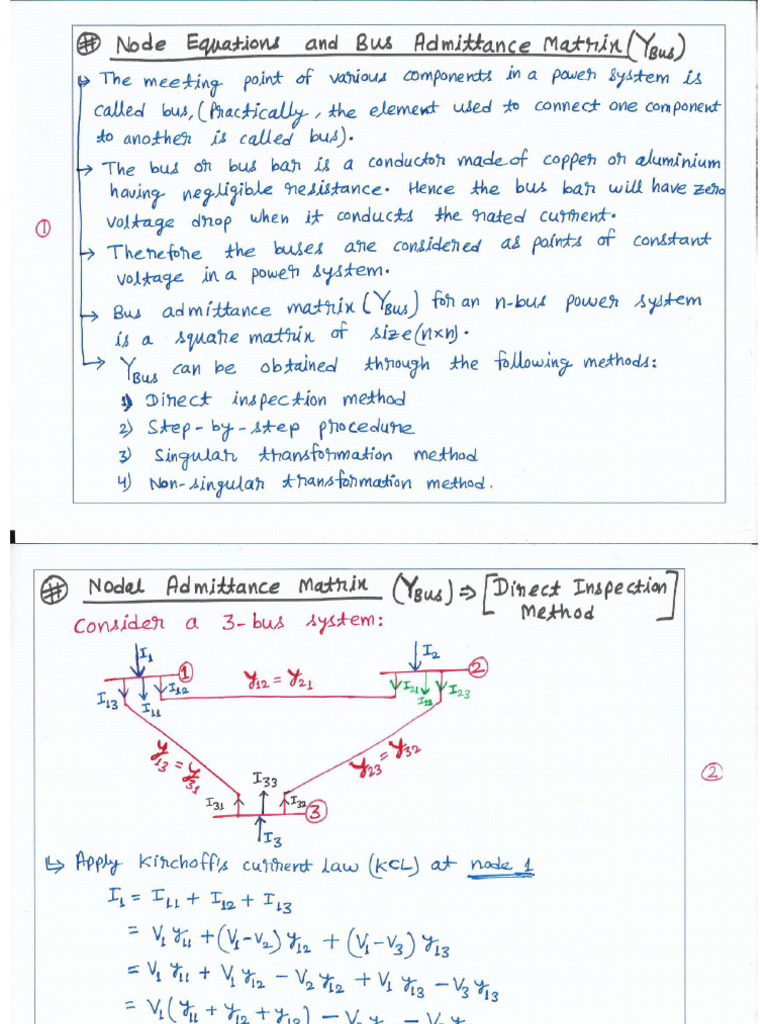 # Node Equations and Bus Admittance Matrix (YBus)
↳ The meeting point of various components in a power system is
called bus, (Practically, the element used to connect one component
to another is called bus).
→ The bus or bus bar is a conductor made of copper or aluminium
having negligible resistance. Hence the bus bar will have zero
voltage drop when it conducts the rated current.
①
→ Therefore the buses are considered as points of constant
voltage in a power system.
→ Bus admittance matrix (YBus) for an n-bus power system
is a square matrix of size (n×n).
→ YBus can be obtained through the following methods:
1) Direct inspection method
2) Step-by-step procedure
3) Singular transformation method
4) Non-singular transformation method.
# Nodal Admittance Matrix (YBus) ⇒ [Direct Inspection
Method]
Consider a 3-bus system:
I1 ① I2 ②
I13 I11 I12 y12 = y21 I21 I23
y13 = y31 y23 = y32
②
I31 I33 I32 ③
I3
↳ Apply Kirchoff's current law (KCL) at node 1
I1 = I11 + I12 + I13
= V1 y11 + (V1-V2) y12 + (V1-V3) y13
= V1 y11 + V1 y12 - V2 y12 + V1 y13 - V3 y13
= V1 (y11 + y12 + y13) - V2 y - V3 y